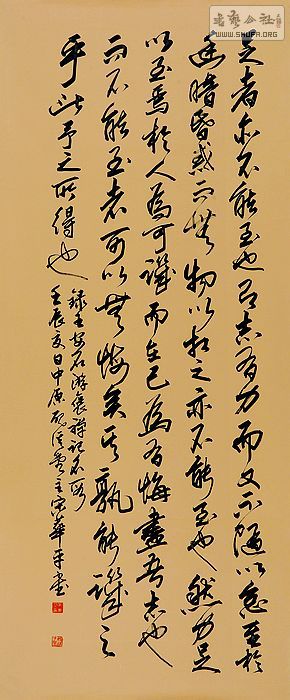 书艺公社
WWW.SHUFA.ORG
足者亦不能至也有志有力而又不隨以怠至於
幽暗昏惑而無物以相之亦不能至也然力足
以至焉於人為可譏而在己為有悔盡吾志也
而不能至者可以無悔矣其孰能譏之
乎此予之所得也
錄王安石游褒禪記
壬辰夏日中原宋華平書